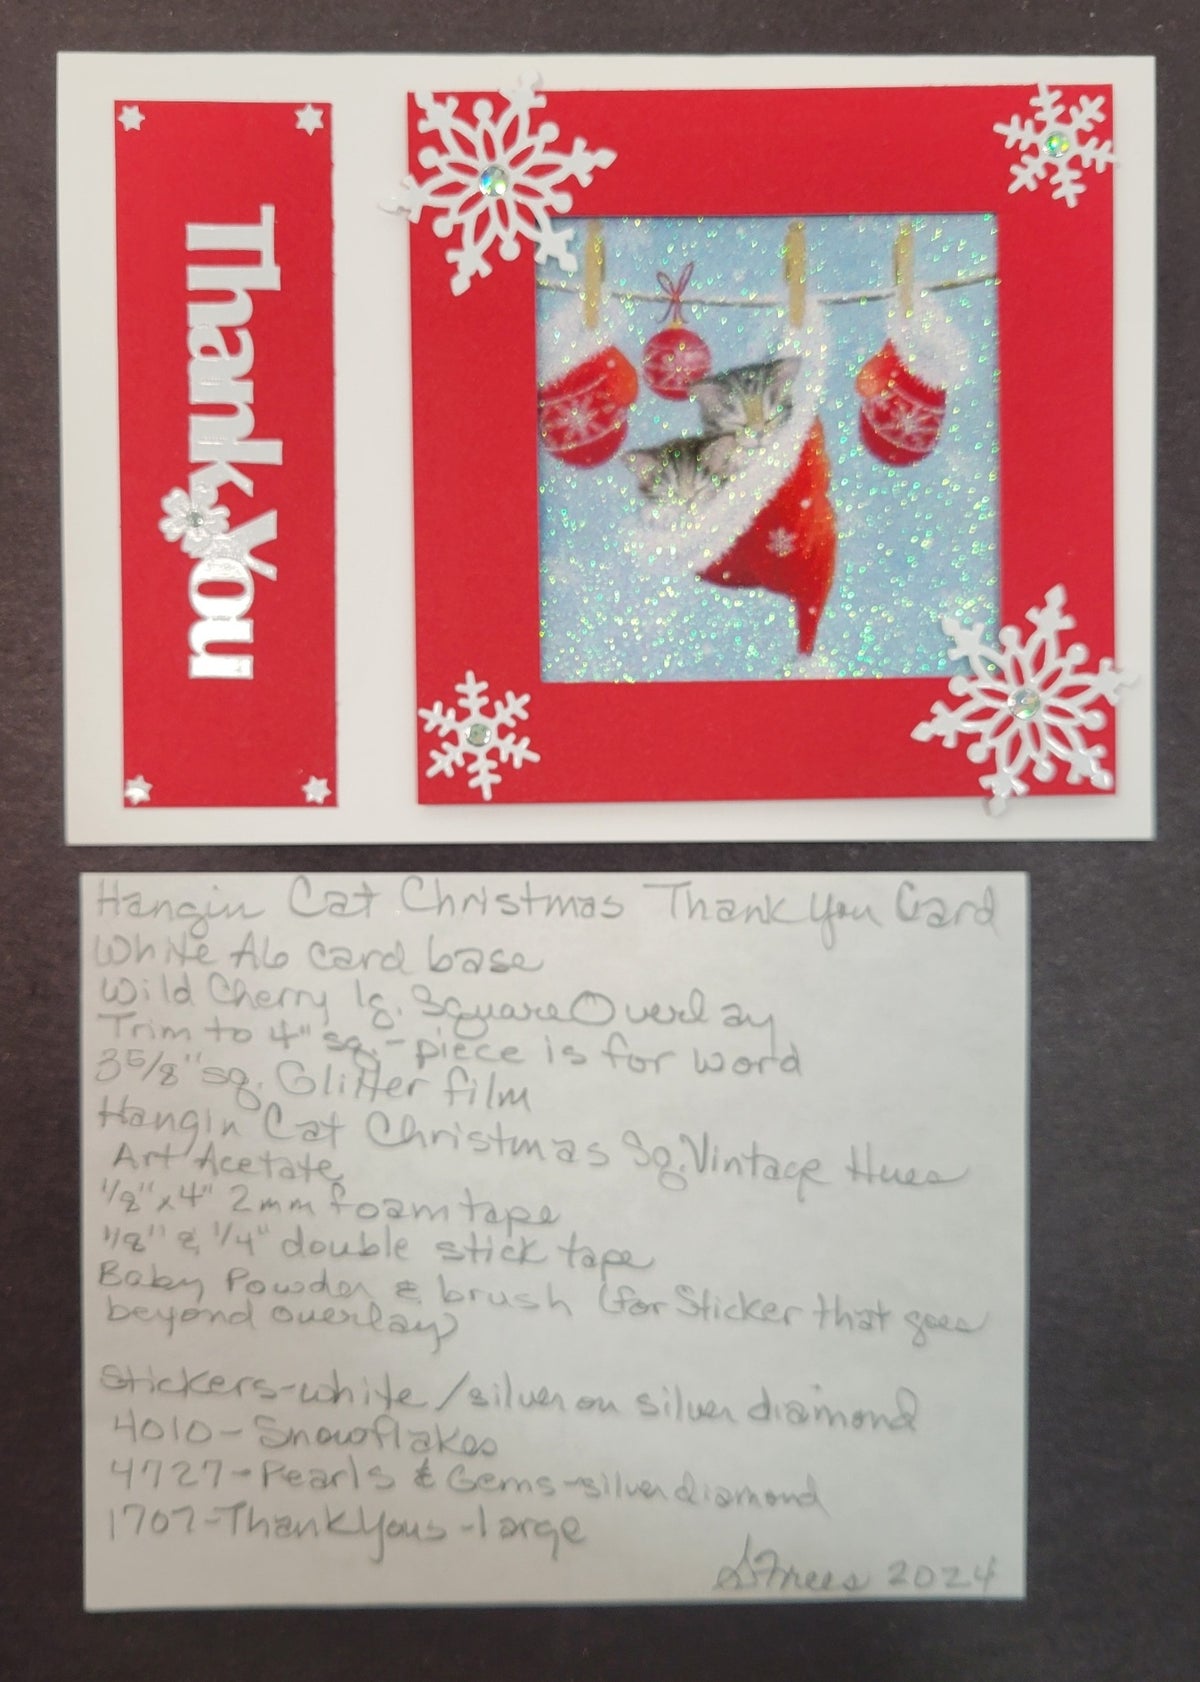 Thank You
Hangin Cat Christmas Thank You Card
White A6 card base
Wild Cherry lg. Square Overlay
Trim to 4" sq. - piece is for word
3 5/8" sq. Glitter film
Hangin Cat Christmas Sq. Vintage Hues
Art Acetate
1/8" x 4" 2mm foam tape
1/8" & 1/4" double stick tape
Baby Powder & brush (for Sticker that goes
beyond overlay)
Stickers-white/silver on silver diamond
4010-Snowflakes
4727-Pearls & Gems-silver diamond
1707-Thank Yous-large
S Frees 2024